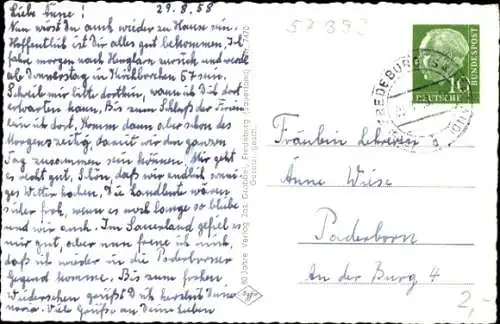 29.8.58
Liebe Änne!
Nun wirst Du auch wieder zu Hause sein.
Hoffentlich ist Dir alles gut bekommen. Ich
fahre morgen nach zurück und werde
ab Donnerstag in Kirchborchen 67 sein.
Schreib mir bitte dorthin, wann ich Dich dort
erwarten kann. Bis zum Schluß der Ferien
bin ich dort. Komme dann aber schon des
Morgens zeitig, damit wir den ganzen
Tag zusammen sein können. Mir geht
es recht gut. Schön, daß wir endlich sonni-
ges Wetter haben. Die Landleute wären
sicher froh, wenn es noch lange so bliebe
und wir auch. Im Sauerland gefiel es
mir gut, aber nun freue ich mich,
daß ich wieder in die Paderborner
Gegend komme. Bis zum frohen
Wiedersehen grüßt Dich herzlich Deine
Viele Grüße an Deine Lieben
60 Jahre Verlag Jos. Grobbel, Fredeburg (Sauerland)
Gesetzl. gesch.
Agfa
57 393
DEUTSCHE BUNDESPOST
10
FREDEBURG
Fräulein Lehrerin
Änne Wiese
Paderborn
An der Burg 4
2,-